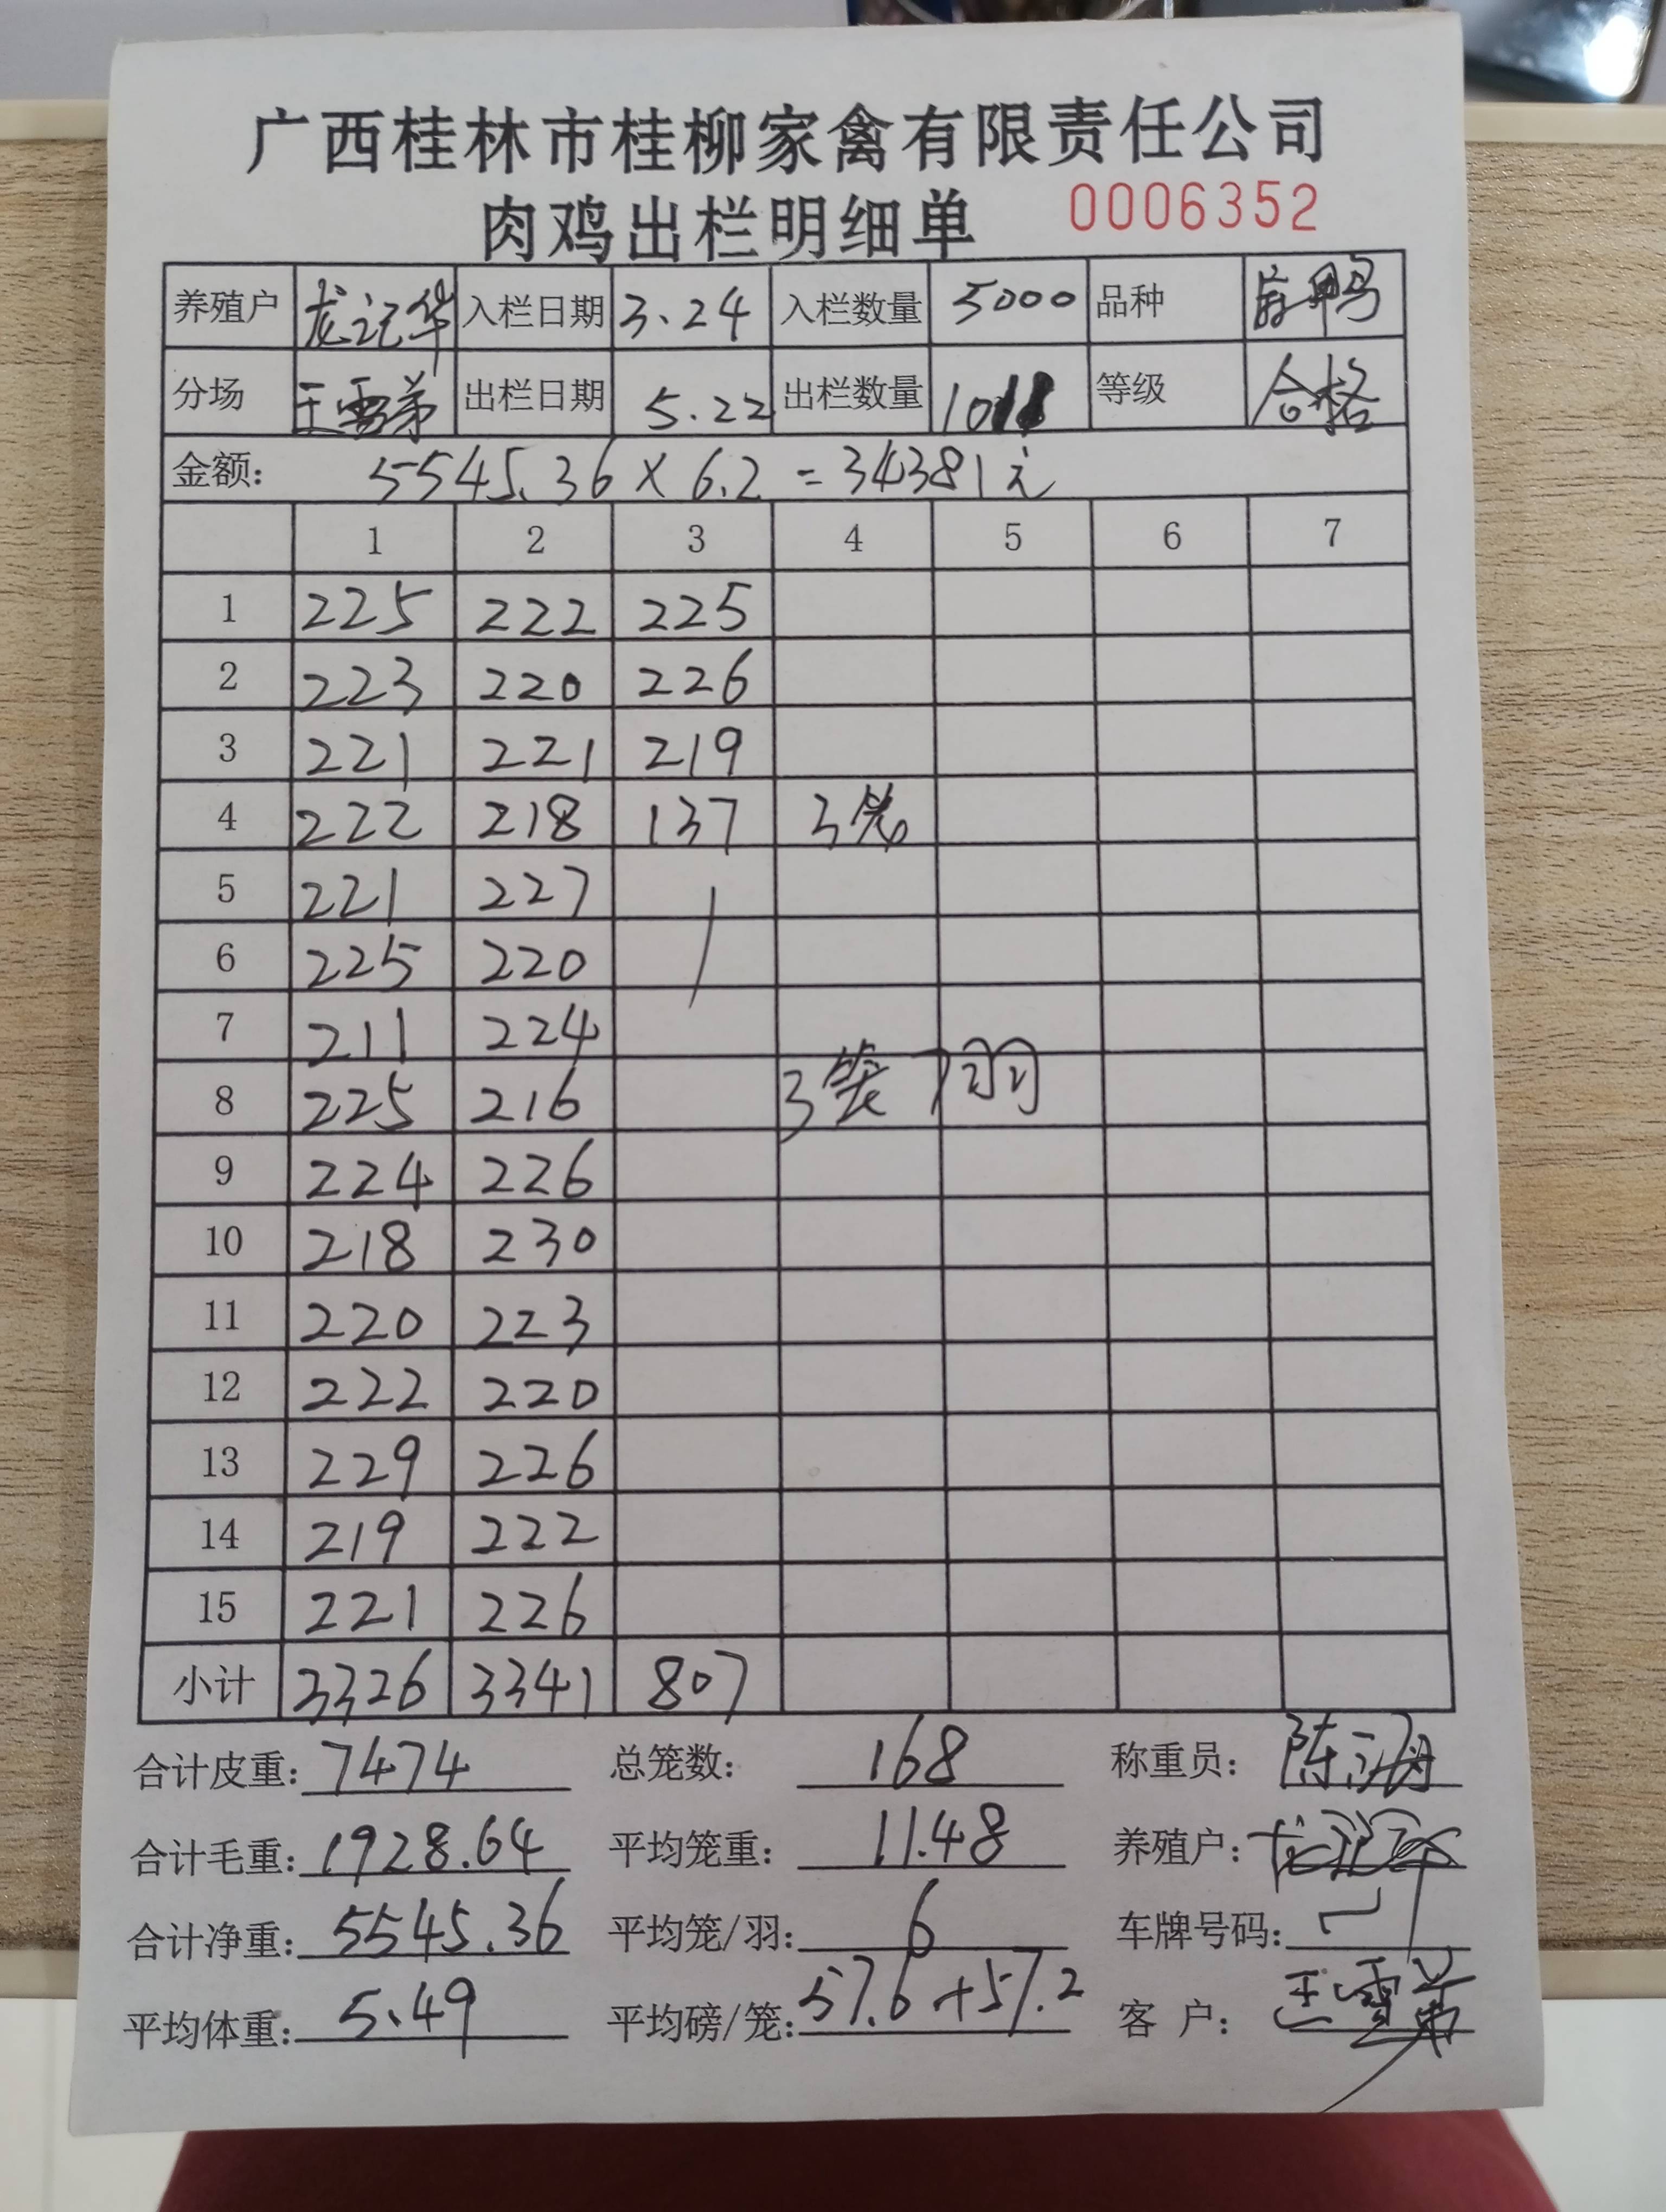 广西桂林市桂柳家禽有限责任公司
肉鸡出栏明细单 0006352
养殖户 龙记华 入栏日期 3.24 入栏数量 5000 品种 麻鸭
分场 王雪弟 出栏日期 5.22 出栏数量 等级 合格
金额: 5545.36 × 6.2 = 34381元
1 2 3 4 5 6 7
1 225 222 225
2 223 220 226
3 221 221 219
4 222 218 137 3笼
5 221 227
6 225 220
7 211 224
8 225 216 3笼 7羽
9 224 226
10 218 230
11 220 223
12 222 220
13 229 226
14 219 222
15 221 226
小计 3326 3341 807
合计皮重: 7474 总笼数: 168 称重员: 陈
合计毛重: 1928.64 平均笼重: 11.48 养殖户: 龙记华
合计净重: 5545.36 平均笼/羽: 6 车牌号码:
平均体重: 5.49 平均磅/笼: 57.6+57.2 客 户: 王雪弟